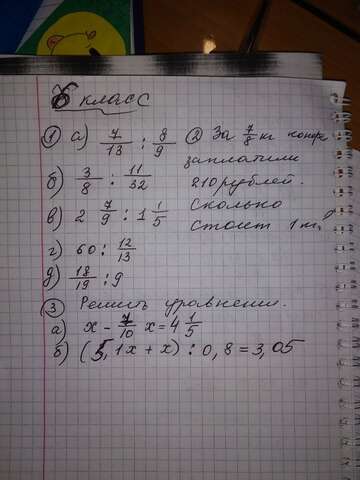 6 класс
① а) 7/13 : 8/9
б) 3/8 : 11/32
в) 2 7/9 : 1 1/5
г) 60 : 12/13
д) 18/19 : 9
② За 7/8 кг конфе
заплатили
210 рублей.
Сколько
стоит 1 кг?
③ Решить уравнения.
а) x - 7/10 x = 4 1/5
б) (5,1x + x) : 0,8 = 3,05